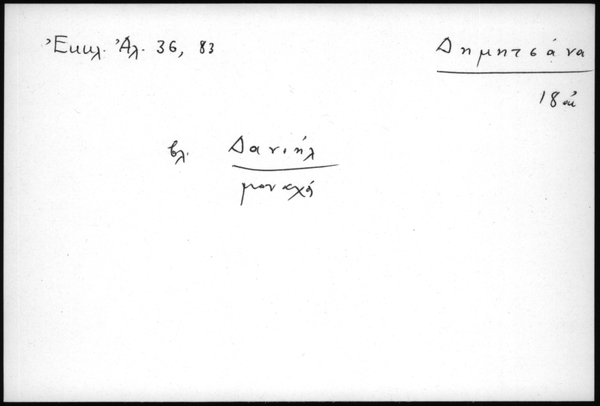 Ἐκκλ. Ἀλ. 36, 83
Δημητσάνα
18 αἰ
βλ. Δανιήλ
μοναχό